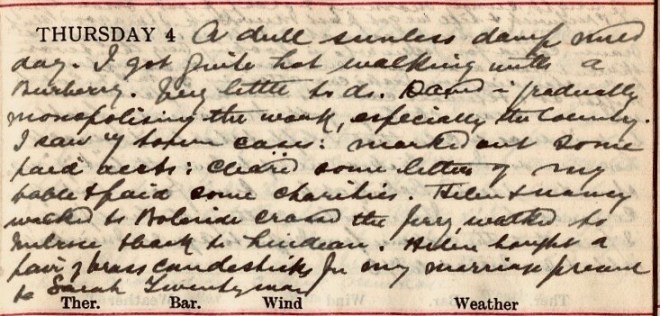 THURSDAY 4 A dull sunless damp mild
day. I got quite hot walking with a
Burberry. Very little to do. David is gradually
monopolising the work, especially the County.
I saw 7 town cases: marked out some
paid accts: cleared some letters of my
table & paid some charities. Helen & Nancy
walked to Boleside crossed the ferry, walked to
Melrose & back to Lindean. Helen bought a
pair of brass candlesticks for my marriage present
to Sarah Twentyman
Ther. Bar. Wind Weather